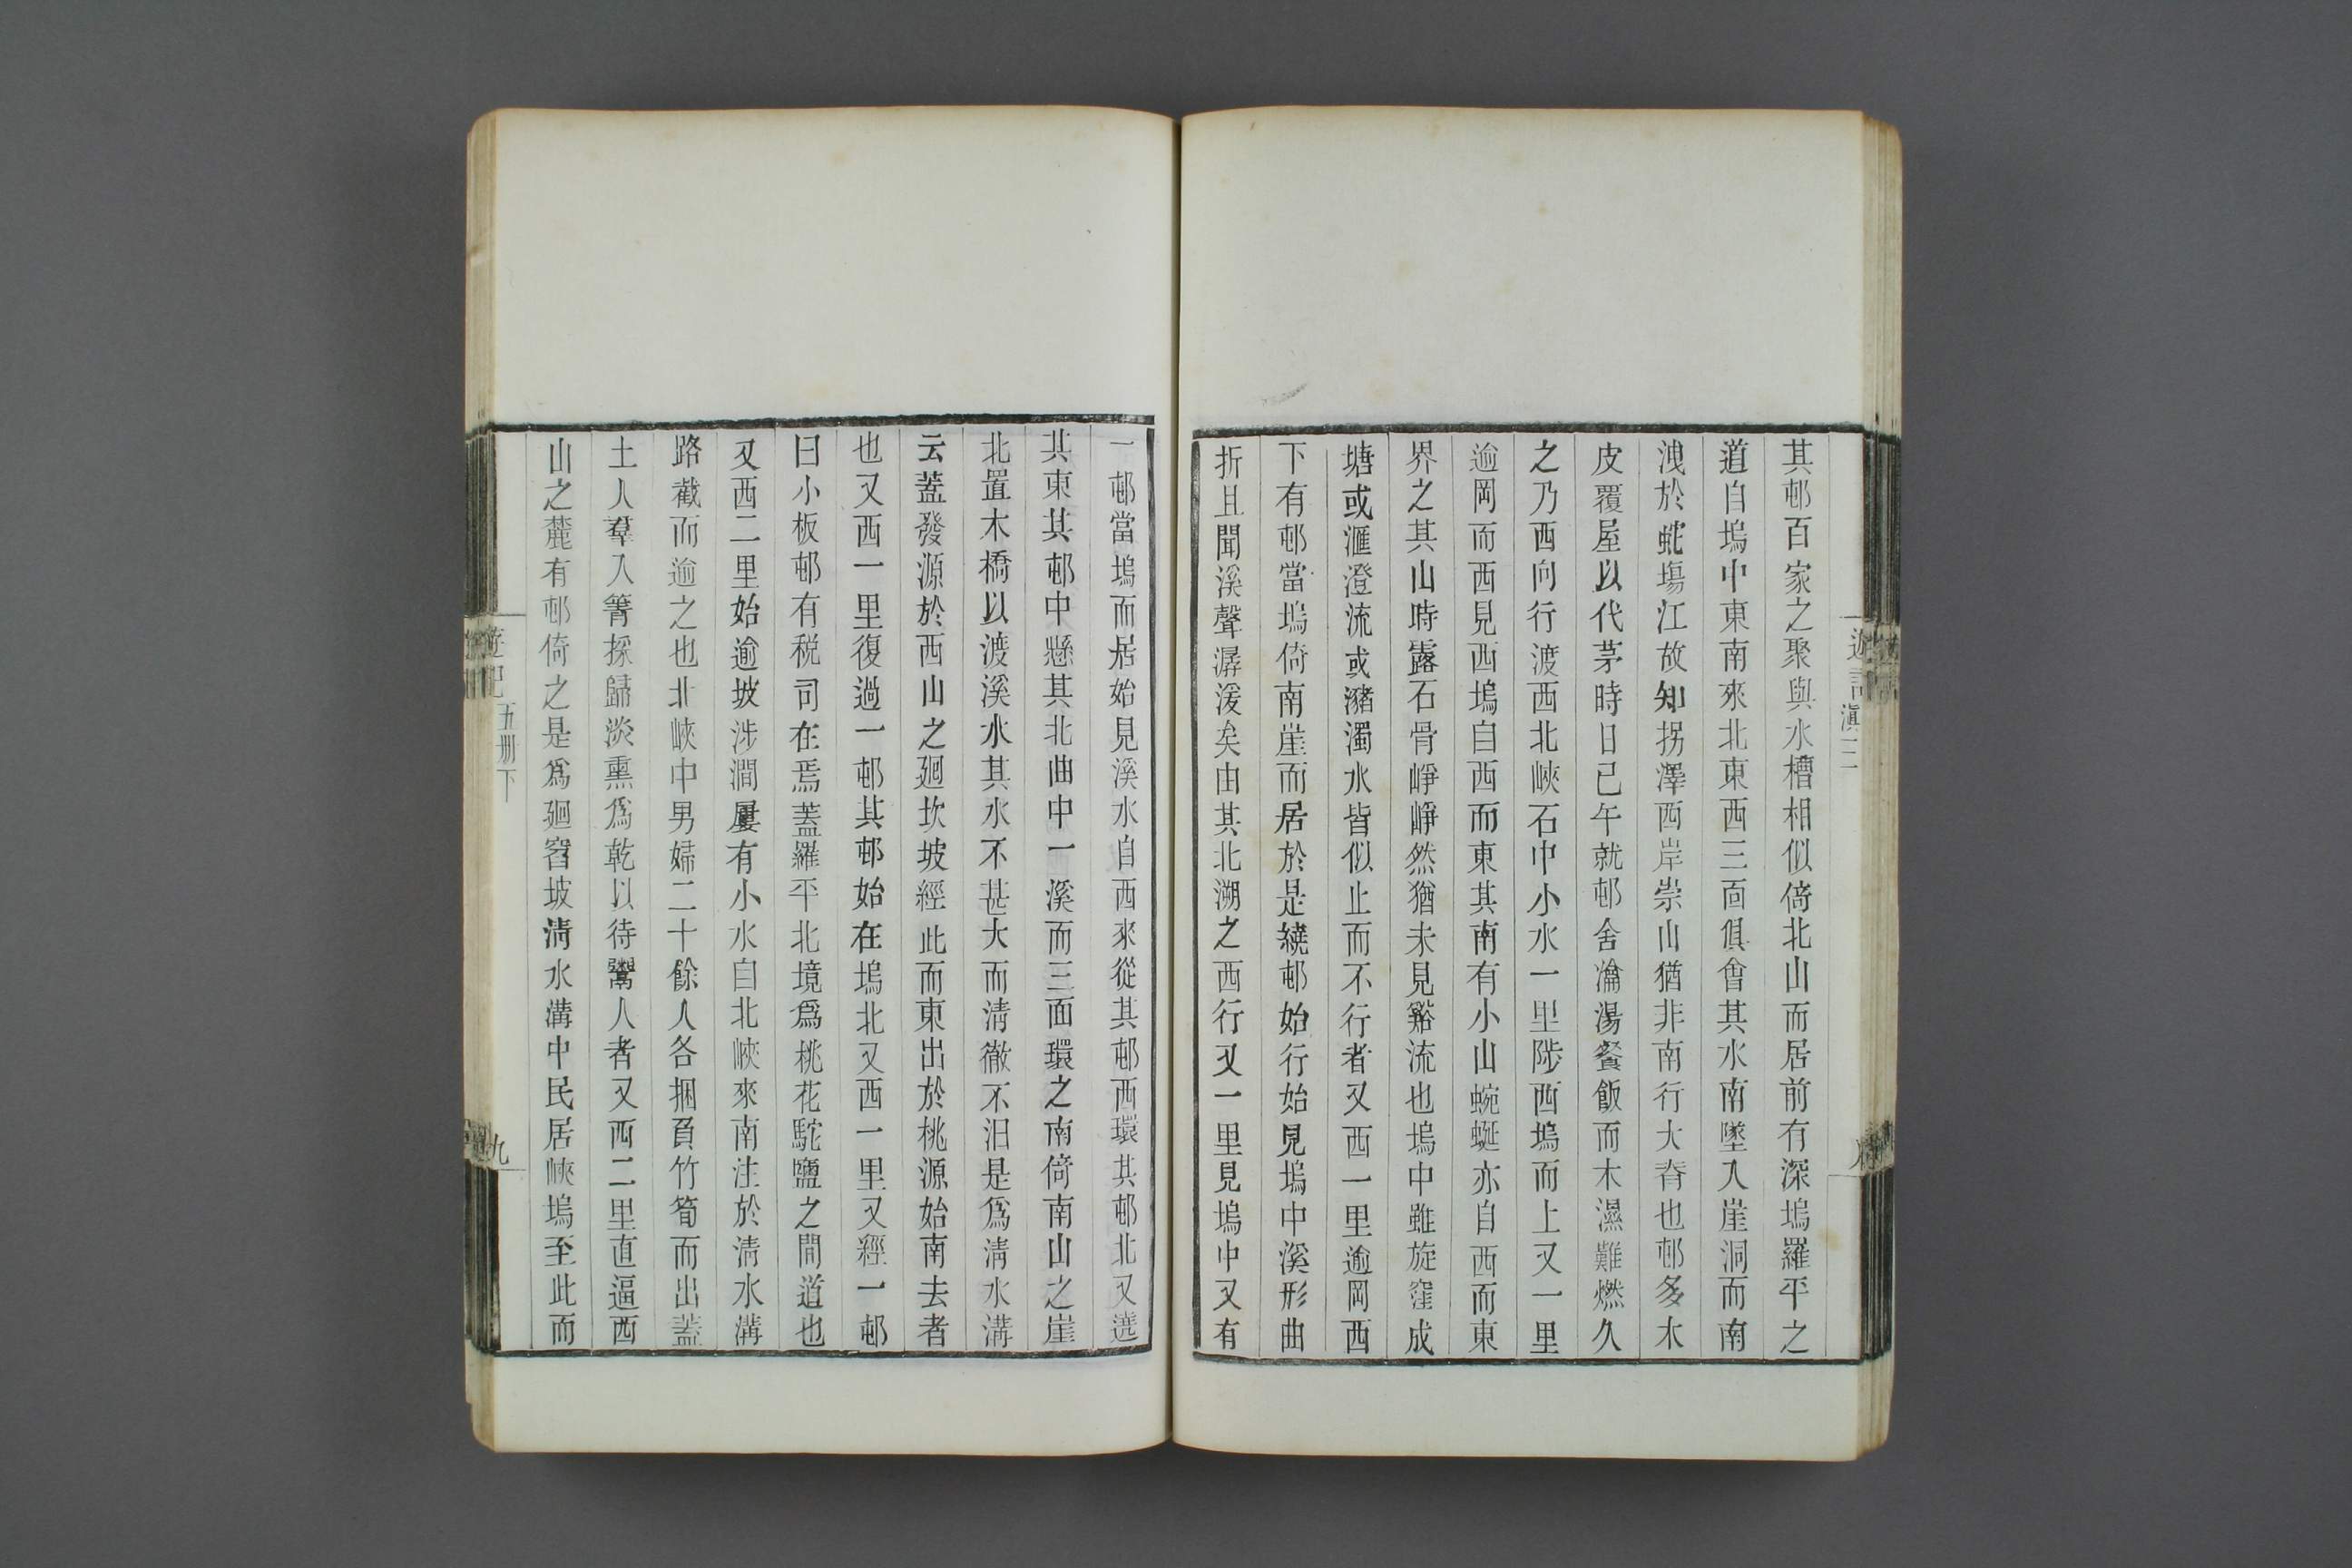 遊記滇三
其邨百家之聚與水槽相似倚北山而居前有深塢羅平之
道自塢中東南來北東西三面俱會其水南墜入崖洞而南
洩於蛇塲江故知拐澤西岸崇山猶非南行大脊也邨多木
皮覆屋以代茅時日已午就邨舍瀹湯餐飯而木濕難燃久
之乃西向行渡西北峽石中小水一里陟西塢而上又一里
逾岡而西見西塢自西而東其南有小山蜿蜒亦自西而東
界之其山時露石骨崢崢然猶未見谿流也塢中雖旋窪成
塘或滙澄流或瀦濁水皆似止而不行者又西一里逾岡西
下有邨當塢倚南崖而居於是繞邨始行始見塢中溪形曲
折且聞溪聲潺湲矣由其北溯之西行又一里見塢中又有
一邨當塢而居始見溪水自西來從其邨西環其邨北又遶
其東其邨中懸其北曲中一溪而三面環之南倚南山之崖
北置木橋以渡溪水其水不甚大而清徹不汨是爲清水溝
云蓋發源於西山之廻坎坡經此而東出於桃源始南去者
也又西一里復過一邨其邨始在塢北又西一里又經一邨
曰小板邨有稅司在焉蓋羅平北境爲桃花駝鹽之間道也
又西二里始逾坡涉澗屢有小水自北峽來南注於清水溝
路截而逾之也北峽中男婦二十餘人各捆負竹筍而出蓋
土人羣入箐採歸淡熏爲乾以待鬻人者又西二里直逼西
山之麓有邨倚之是爲廻窞坡清水溝中民居峽塢至此而
遊記五冊下
九